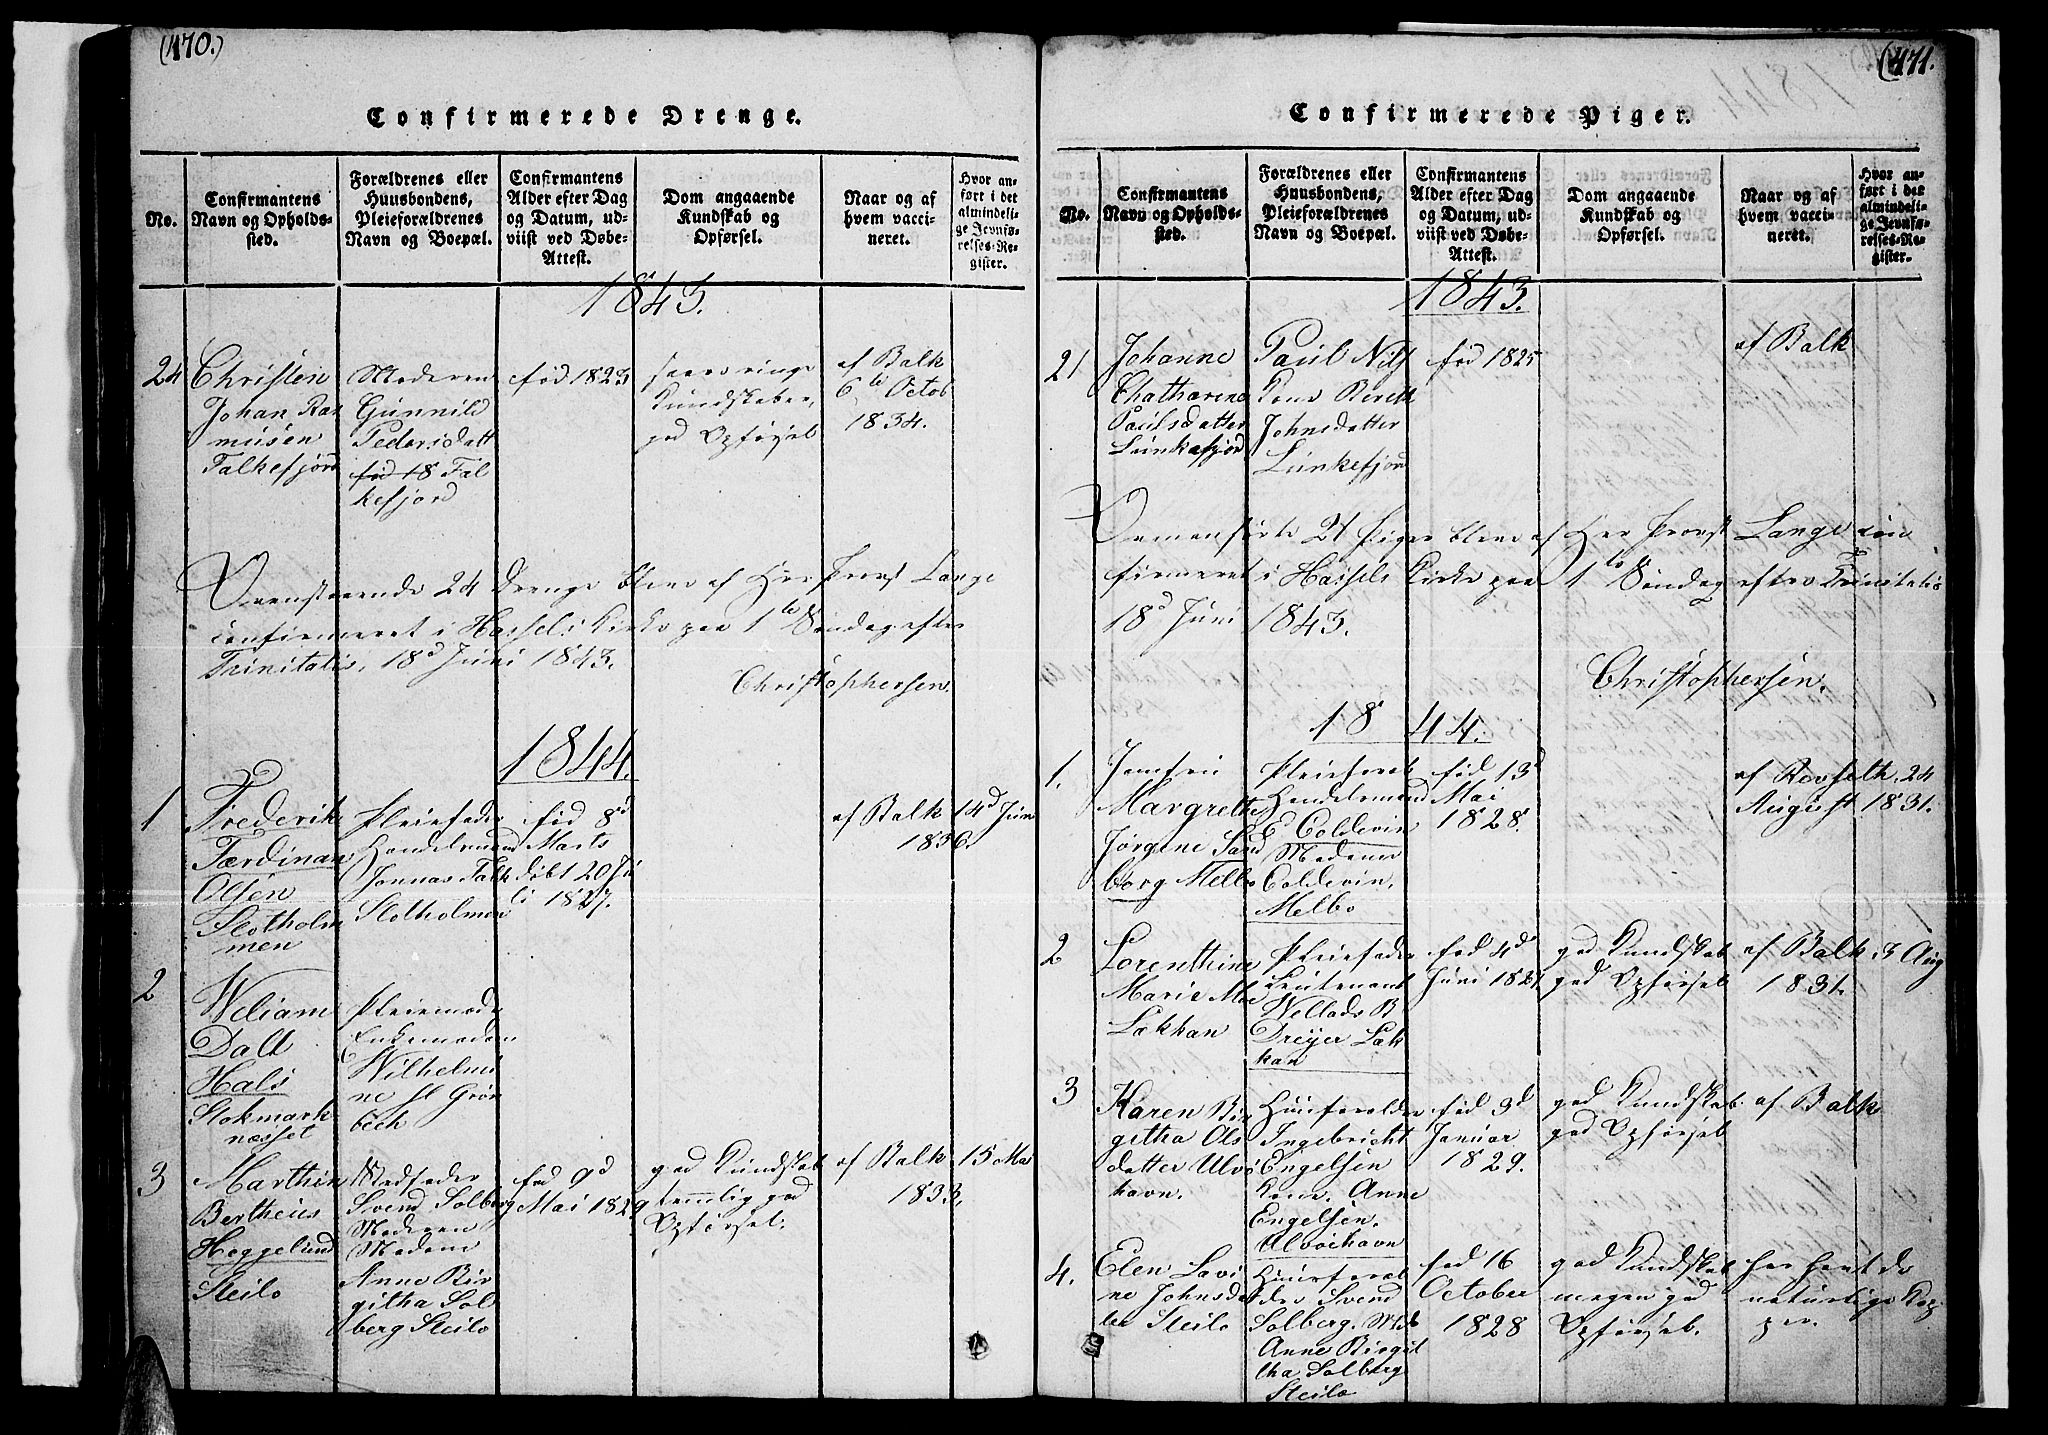 (470.)
Confirmerede Drenge.
No.
Confirmantens
Navn og Opholds-
sted.
Forældrenes eller
Huusbondens,
Pleieforældrenes
Navn og Boepæl.
Confirmantens
Alder efter Dag
og Datum, ud-
viist ved Døbe-
Attest.
Dom angaaende
Kundskab og
Opførsel.
Naar og af
hvem vacci-
neret.
Hvor an-
ført i det
almindeli-
ge Jevnfø-
relses-Re-
gister.
1843.
24
Christen
Johan Ras
musen
Falkefjord
Moderen
Gunnild
Pedersdatt
fød 18 Fal
kefjord
fød 1823
ringe
Kundskaber,
god Opførsel
af Balk
6te Octob
1834.
Ovenstaaende 24 Drenge bleve af Hr Provst Lange
confirmeret i Hassels Kirke paa 1te Søndag efter
Trinitatis, 18d Juni 1843.
Christophersen.
1844.
1
Frederik
Færdinan
Olsen
Slotholm
men
Pleiefader
Handelsmand
Jonnas Falk
Slotholmen
fød 8d
Marts
døbt 20 Ju
li 1827.
af Balk 14d Juni
1836.
2
Weliam
Dall
Hals
Stokmark
næsset
Pleiemode
Enkemadam
Wilhelmi
ne Sl Grøn
bech
3
Marthin
Bertheus
Heggelund
Steilo
Stedfader
Svend Solberg
Moderen
Madame
Anne Bir
githa Sol
berg Steilo
fød 9d
Mai 1829
god Kundskab
temmlig god
Opførsel.
af Balk 15 Ma
1833.
4
(471.
Confirmerede Piger.
No.
Confirmantens
Navn og Opholds-
sted.
Forældrenes eller
Huusbondens,
Pleieforældrenes
Navn og Boepæl.
Confirmantens
Alder efter Dag
og Datum, ud-
viist ved Døbe-
Attest.
Dom angaaende
Kundskab og
Opførsel.
Naar og af
hvem vacci-
neret.
Hvor an-
ført i det
almindeli-
ge Jevnfø-
relses-Re-
gister.
1843.
21
Johanne
Chatharine
Paulsdatter
Lunkefjord
Paul Nils
Kone Bereth
Johnsdatter
Lunkefjord
fød 1825
af Balk
Ovenanførte 21 Piger bleve af Her Provst Lange con
firmeret i Hassels Kirke paa 1te Søndag efter Trinitatis
18d Juni 1843.
Christophersen.
1844.
1.
Jomfru
Margrethe
Jørgine Sand
borg Melbo
Pleieforæl
Handelsmand
E Coldevin
Madame
Coldevin,
Melbo
fød 13d
Mai
1828.
af 24
August 1831.
2
Lorenthine
Marie Moe
Lakhan
Pleiefader
Leutenant
B
Dreyer Lak
han
fød 4de
Juni 1827
god Kundskab
god Opførsel
af Balk 3 Aug
1831.
3
Karen Bir
githa Ols
datter Ulvø
havn.
Huusforældre
Ingebricht
Engelsen
Kone, Anne
Engelsen.
Ulvøehavn
fød 3d
Januar
1829.
god Kundskab
god Opførsel
af Balk
4.
Elen Lovi
ne Johnsda
ter Steilo
Huusforæl
dre Svend
Solberg. Mad
Anne Birgit
tha Solberg
Steilo
fød 16
October
1828
god Kundskab
megen god
Opførsel.
har havt de
naturlige Kop
per.
5